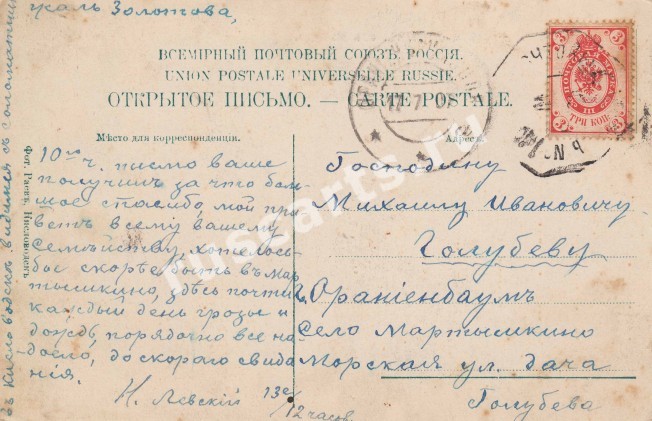 ѣхалъ Золотова,
ВСЕМІРНЫЙ ПОЧТОВЫЙ СОЮЗЪ. РОССІЯ.
UNION POSTALE UNIVERSELLE RUSSIE.
ОТКРЫТОЕ ПИСЬМО. — CARTE POSTALE.
Мѣсто для корреспонденціи.
Адресъ.
10го ч. писмо ваше
получил за что бол-
шое спасибо, мой при-
ветъ всему вашему
Семѣйству, хотелось-
бы скорѣе быть въ Мар-
тышкино, здѣсь почти
каждый день грозы и
дождь, порядочно все на-
доело, до скораго свида-
нія.
Н. Левскій 13е/
12 часов.
въ Кисловодскѣ видимся съ
Фот. Раевъ, Кисловодскъ.
Господину
Михаилу Ивановичу
Голубеву
г. Ораніенбаумъ
Село Мартышкино
Морская ул. дача
Голубева
3
3
ПОЧТОВАЯ МАРКА
ТРИ КОП.
3
3
russarts.ru